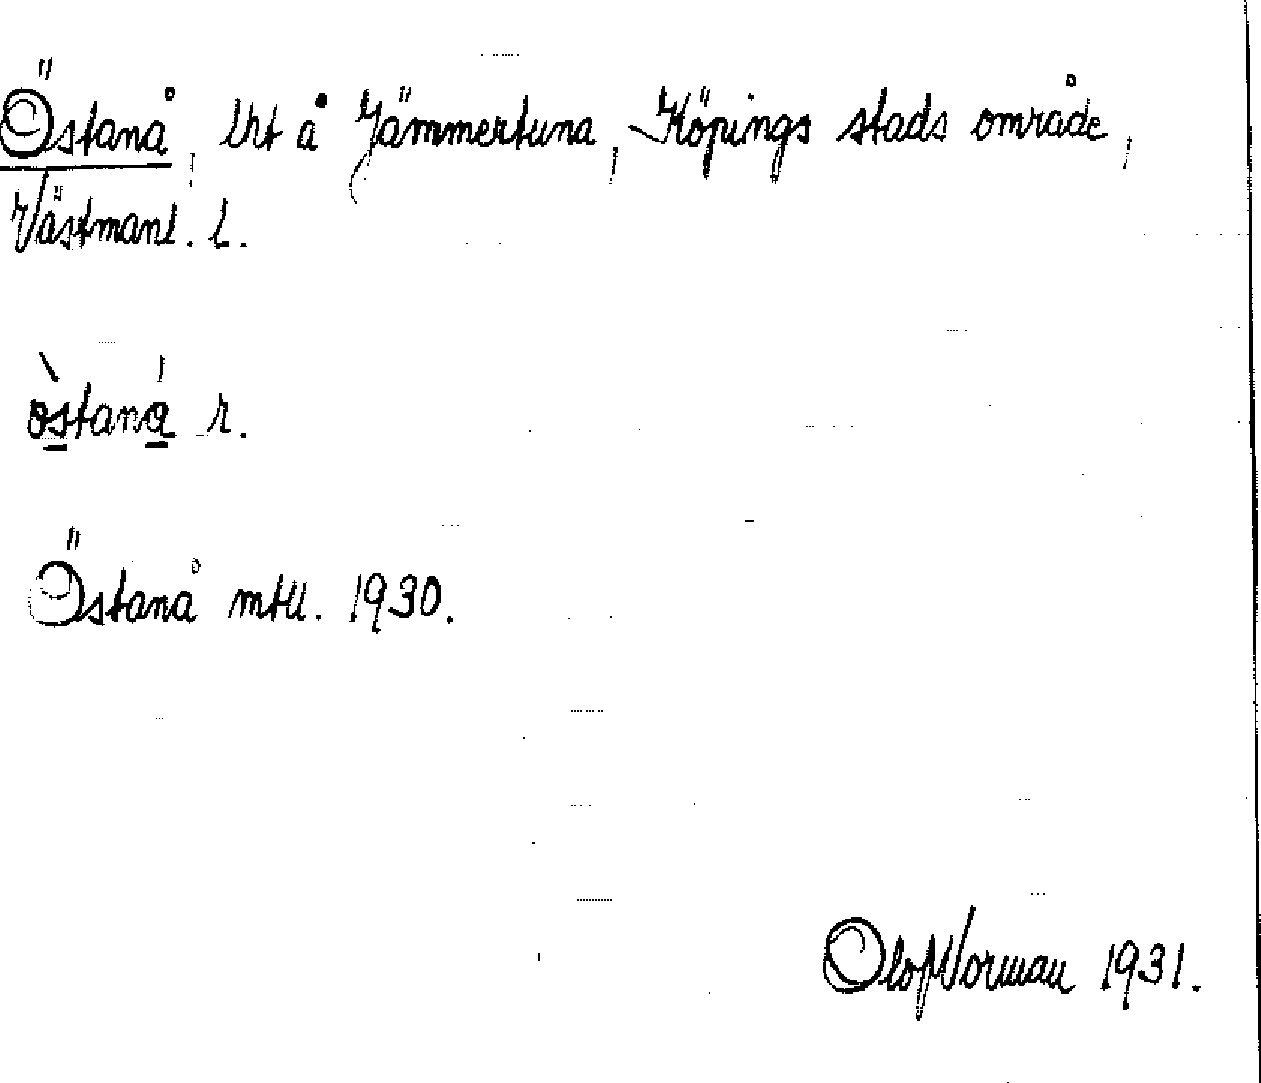 Östanå, lht å Jämmertuna, Köpings stads område,
Västmanl. l.
östaná r.
Östanå mtll. 1930.
Olof Norman 1931.